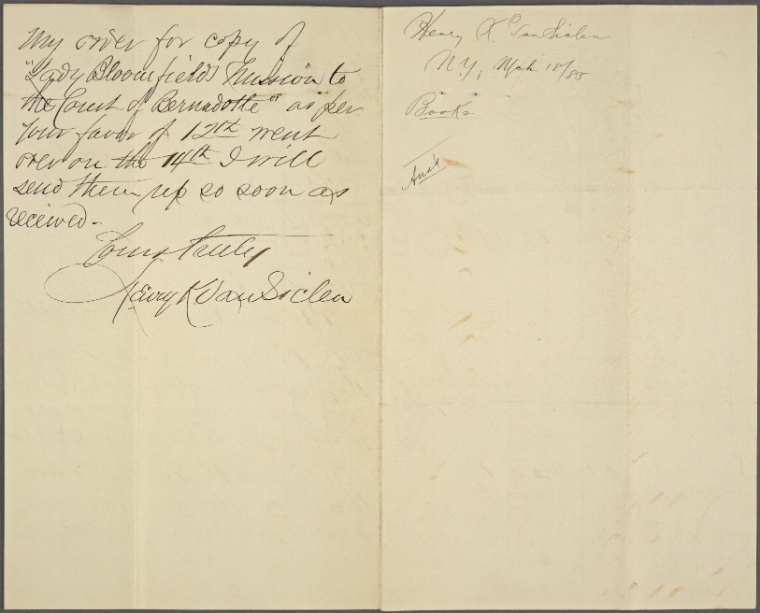 My order for copy of
"Lady Bloomfield's Mission to
the Court of Bernadotte" as per
your favor of 12th went
over on the 14th I will
send them up so soon as
received -
Yours truly
Henry K Van Siclen
Henry K. Van Siclen
N.Y., Mch 18/85
Books
Ansd